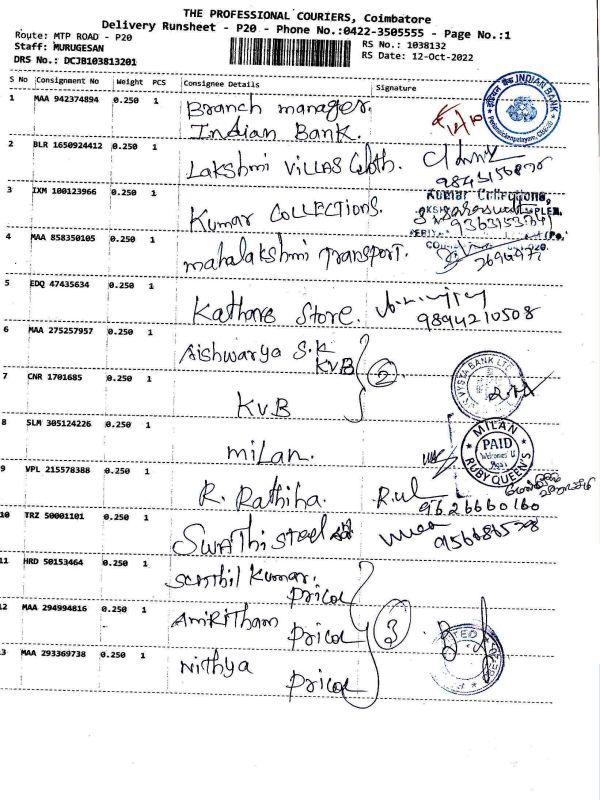 THE PROFESSIONAL COURIERS, Coimbatore
Delivery Runsheet - P20 - Phone No.:0422-3505555 - Page No.:1
Route: MTP ROAD - P20
RS No.: 1038132
Staff: MURUGESAN
RS Date: 12-Oct-2022
DRS No.: DCJB103813201
S No Consignment No Weight PCS Consignee Details Signature
1 MAA 942374894 0.250 1 Branch manager.
Indian Bank.
INDIAN BANK
2 BLR 1650924412 0.250 1 Lakshmi VILLAS Cloth.
3 IXM 100123966 0.250 1 Kumar COLLECTIONS. Kumar Collections,
4 MAA 858350105 0.250 1 mahalakshmi Transport.
5 EDQ 47435634 0.250 1 Kathans Store. 9894210508
6 MAA 275257957 0.250 1 Aishwarya S.K
KVB 2
VYSYA BANK LTD
7 CNR 1701685 0.250 1 KVB
8 SLM 305124226 0.250 1 milan.
MILAN
PAID
RUBY QUEEN'S
9 VPL 215578388 0.250 1 R. Rathiha. 9626660160
10 TRZ 50001101 0.250 1 Swathi Steel
11 HRD 50153464 0.250 1 Senthil Kumar.
Pricol
12 MAA 294994816 0.250 1 Amiritham
Pricol 3
13 MAA 293369738 0.250 1 Nithya
Pricol